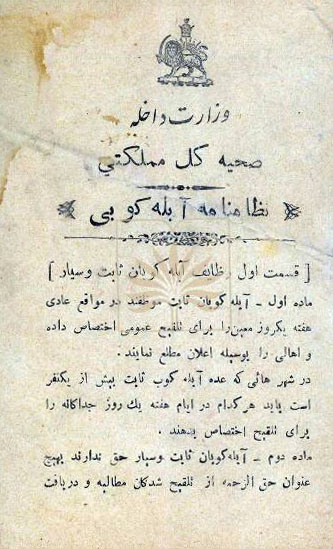 وزارت داخله
صحیه کل مملکتی
نظامنامه آبله کوبی
[ قسمت اول وظایف آبله کوبان ثابت وسیار ]
ماده اول ـ آبله کوبان ثابت موظفند در مواقع عادی
هفته یکروز معین را برای تلقیح عمومی اختصاص داده
و اهالی را بوسیله اعلان مطلع نمایند .
در شهر هائی که عده آبله کوب ثابت بیش از یکنفر
است باید هر کدام در ایام هفته یك روز جداگانه را
برای تلقیح اختصاص بدهند .
ماده دوم ـ آبله کوبان ثابت وسیار حق ندارند بهیچ
عنوان حق الزحمه از تلقیح شدکان مطالبه و دریافت